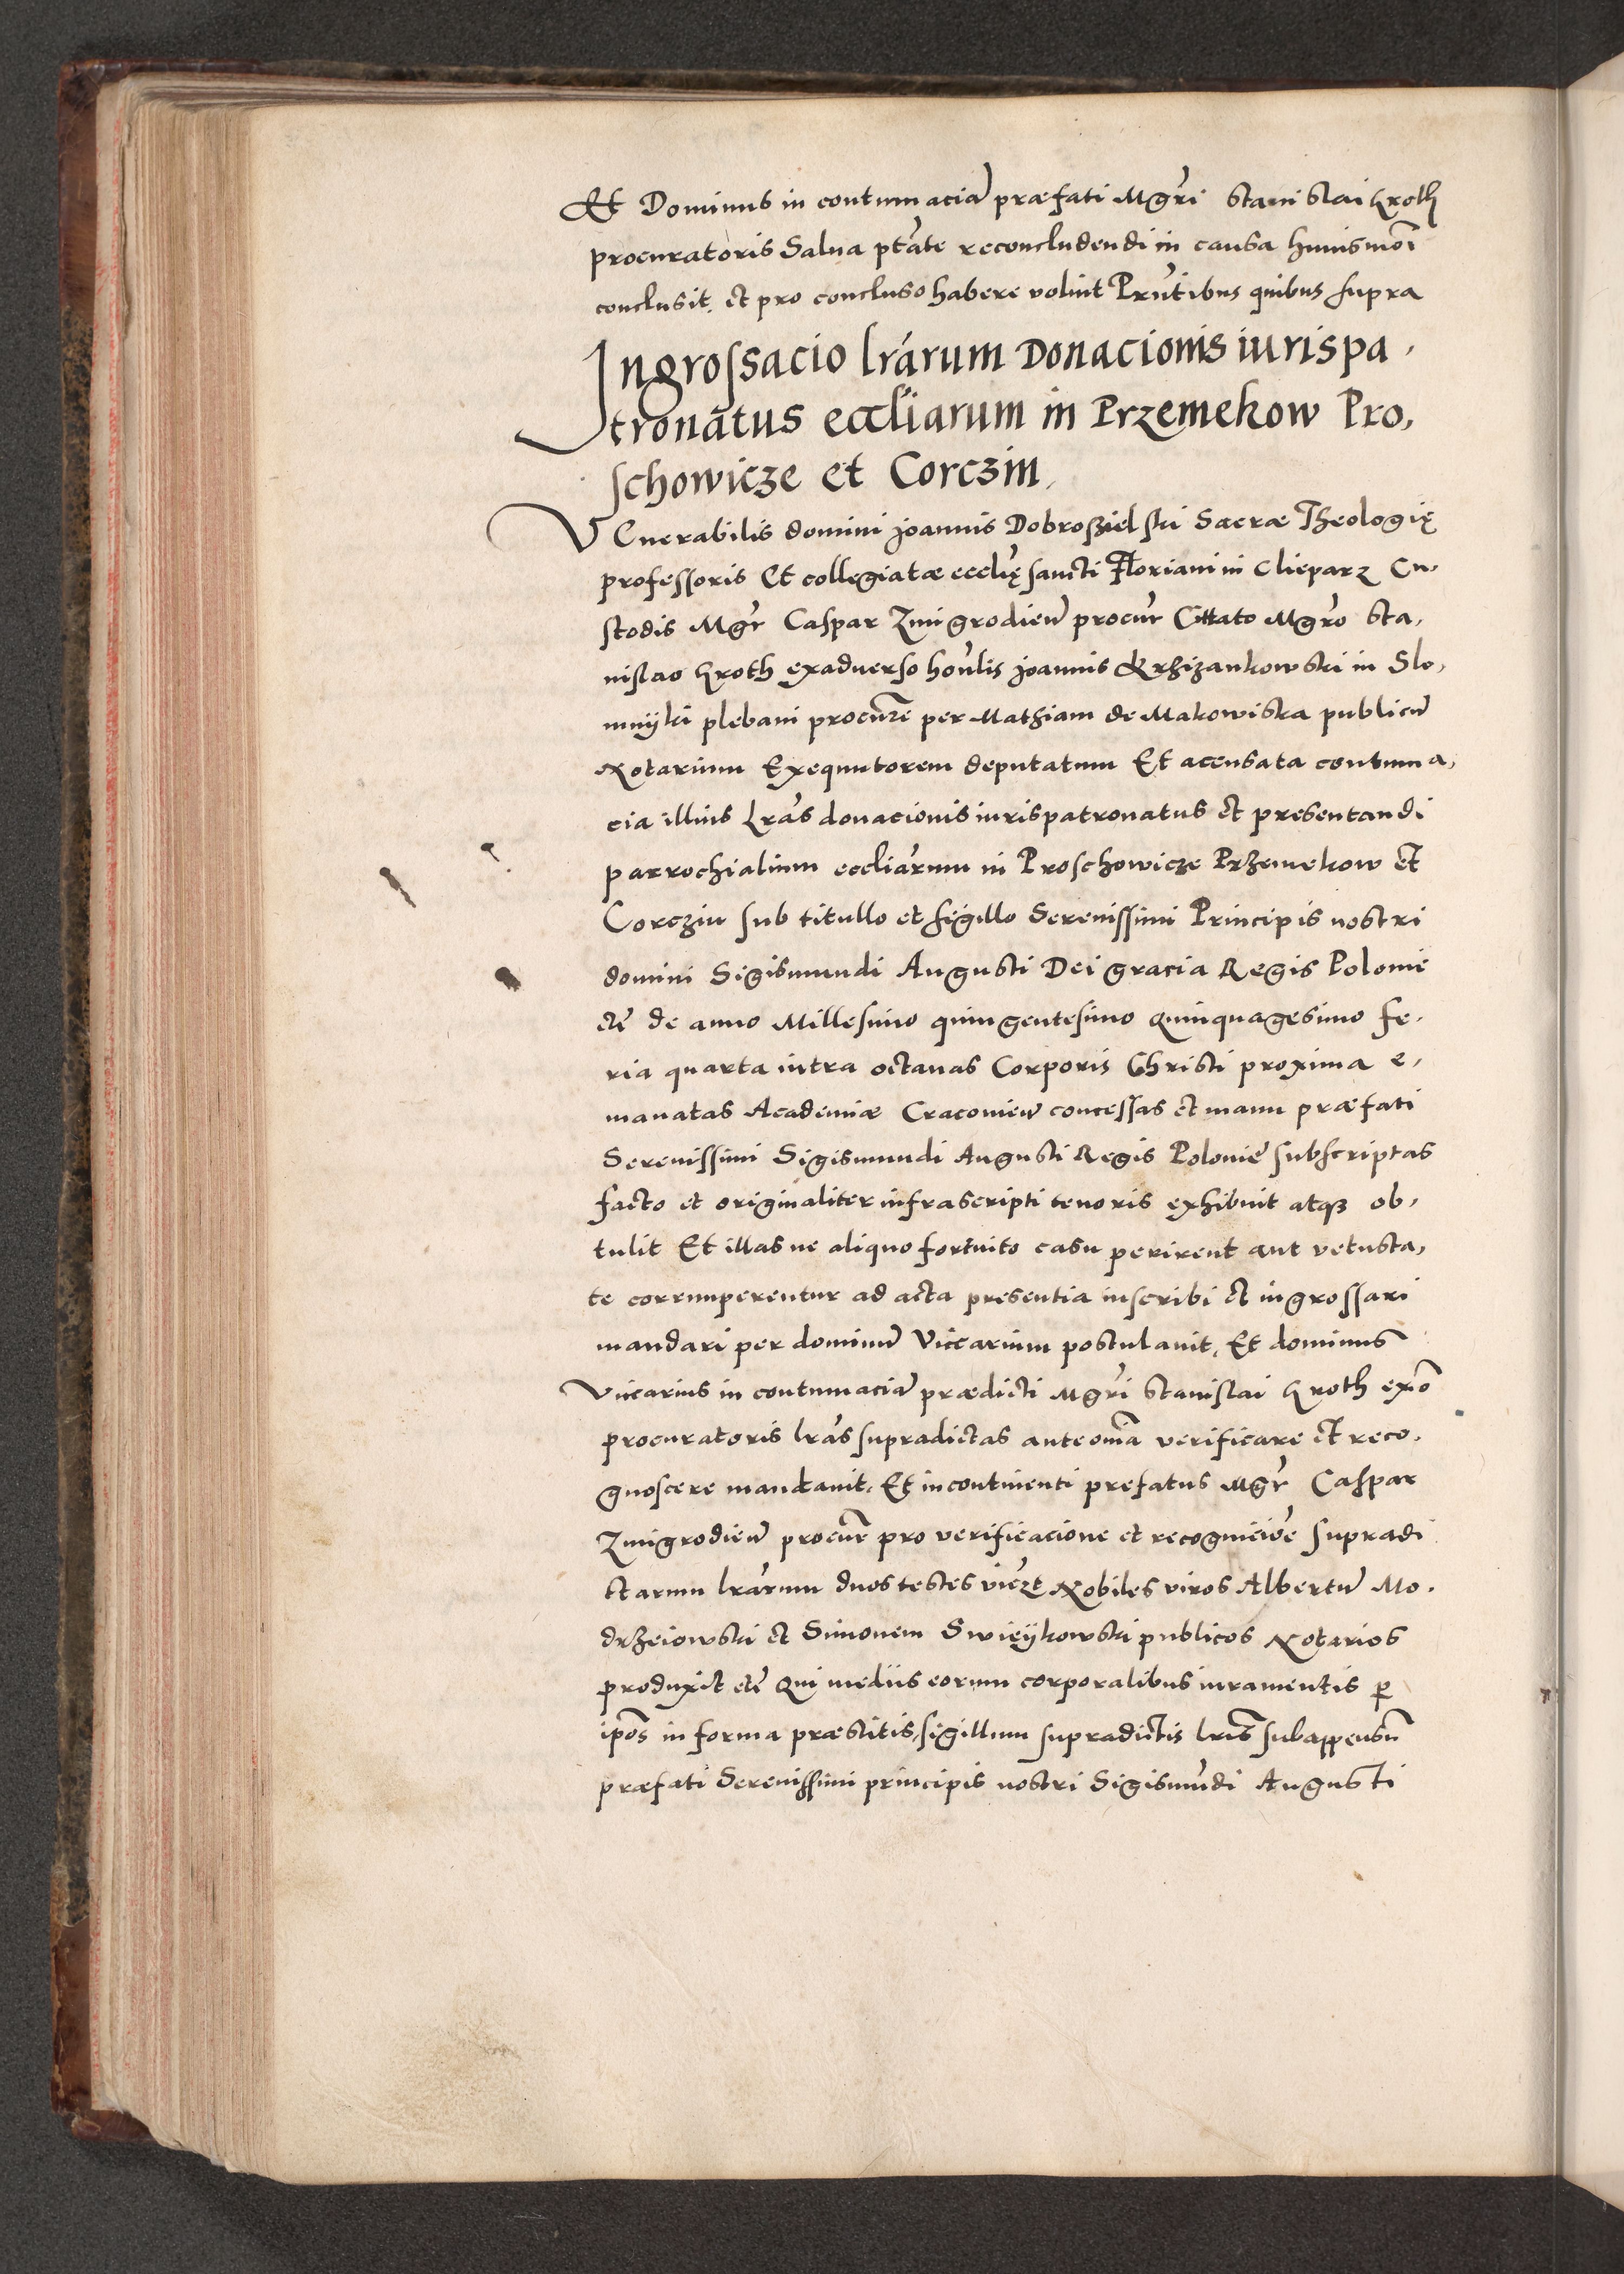 Et Dominus in contumaciā præfati Mgrī Stanislai Kroth
procuratoris Salua ptāte reconcludendi in causa huiusmōi
conclusit, et pro concluso habere voluit Prūtibus quibus supra
Ingrossacio lrārum Donacionis iurispa,
tronātus eccliarum in Przemekow Pro,
schowicze et Corczin,
VEnerabilis domini Joannis Dobrosziel ski Sacræ Theologię
professoris Et collegiatæ ecclię sancti Floriani in Clieparz Cu,
stodis Mgr̄ Caspar Zmigrodieñ procur̄ Cittato Mgrō Sta,
nislao Kroth exaduerso honlīs Joannis Krzizankowski in Slo,
mnyki plebani procurē per Mathiam de Makowiska publicū
Notarium Exequutorem deputatum Et accusata contuma,
cia illius Lrās donacionis iurispatronatus et presentandi
parrochialium eccliārum in Proschowicze Przemekow et
Corczin sub titullo et sigillo Serenissimi Principis nostri
domini Sigismundi Augusti Dei gracia Regis Polonie
etc̄ de anno Millesimo quingentesimo Quinquagesimo fe,
ria quarta intra octauas Corporis Christi proxima e,
manatas Academiæ Cracouieñ concessas et manu præfati
Serenissimi Sigismundi Augusti Regis Polonie subscriptas
facto et originaliter infrascripti tenoris exhibuit atqȝ ob,
tulit Et illas ne aliquo fortuito casu perirent aut vetusta,
te corrumperentur ad acta presentia inscribi et ingrossari
mandari per dominū Vicearium postulauit, Et dominus
Vicearius in contumaciā prædicti Mgrī Stanislai Kroth exō
procuratoris lrās supradictas ante omīa verificare et reco,
gnoscere mandauit, Et incontinenti prefatus Mgr̄ Caspar
Zmigrodieñ procur̄ pro verificacione et recognicioē supradi
ctarum lrārum duos testes vicȝt Nobiles viros Albertū Mo,
drzeiowski et Simonem Swieykowski publicos Notarios
produxit etc̄ Qui mediis eorum corporalibus iuramentis ꝑ
ipōs in forma præstitis, sigillum supradictis lrīs subappensū
præfati Serenissimi principis nostri Sigismūdi Augusti